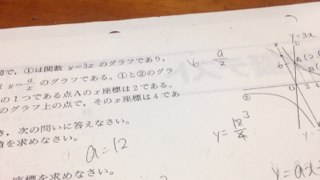 図で，①は関数 y=3x のグラフであり，
y=a/x のグラフである。①と②のグラ
の1つである点Aのx座標は2である。
のグラフ上の点で，そのx座標は4であ
き，次の問いに答えなさい。
値を求めなさい。
a=12
座標を求めなさい。
y=a/x
y=12/4 3
y=3x
①
y=ax